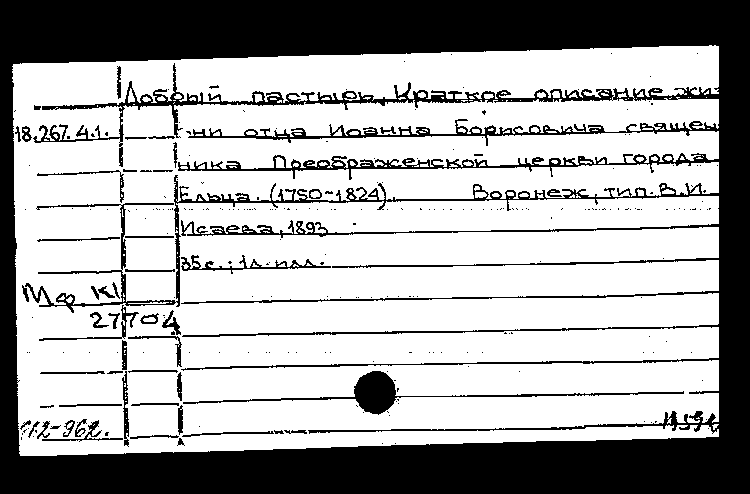 Добрый пастырь. Краткое описание жиз-
18.267.4.1. ни отца Иоанна Борисовича священ
ника Преображенской церкви города
Ельца. (1750-1824). Воронеж, тип. В.И.
Исаева, 1893
35 с.; 1 л. илл.
Мф. К1
27704
112-962.